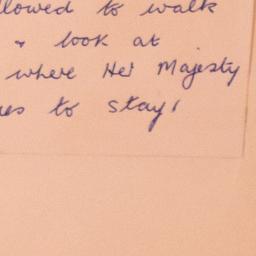 llowed to walk
& look at
where Her Majesty
es to stay!